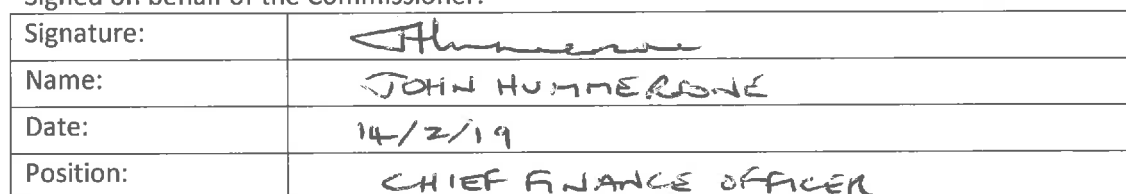 Signed on behalf of the Commissioner:
Signature:
Name: JOHN HUMMERSONE
Date: 14/2/19
Position: CHIEF FINANCE OFFICER